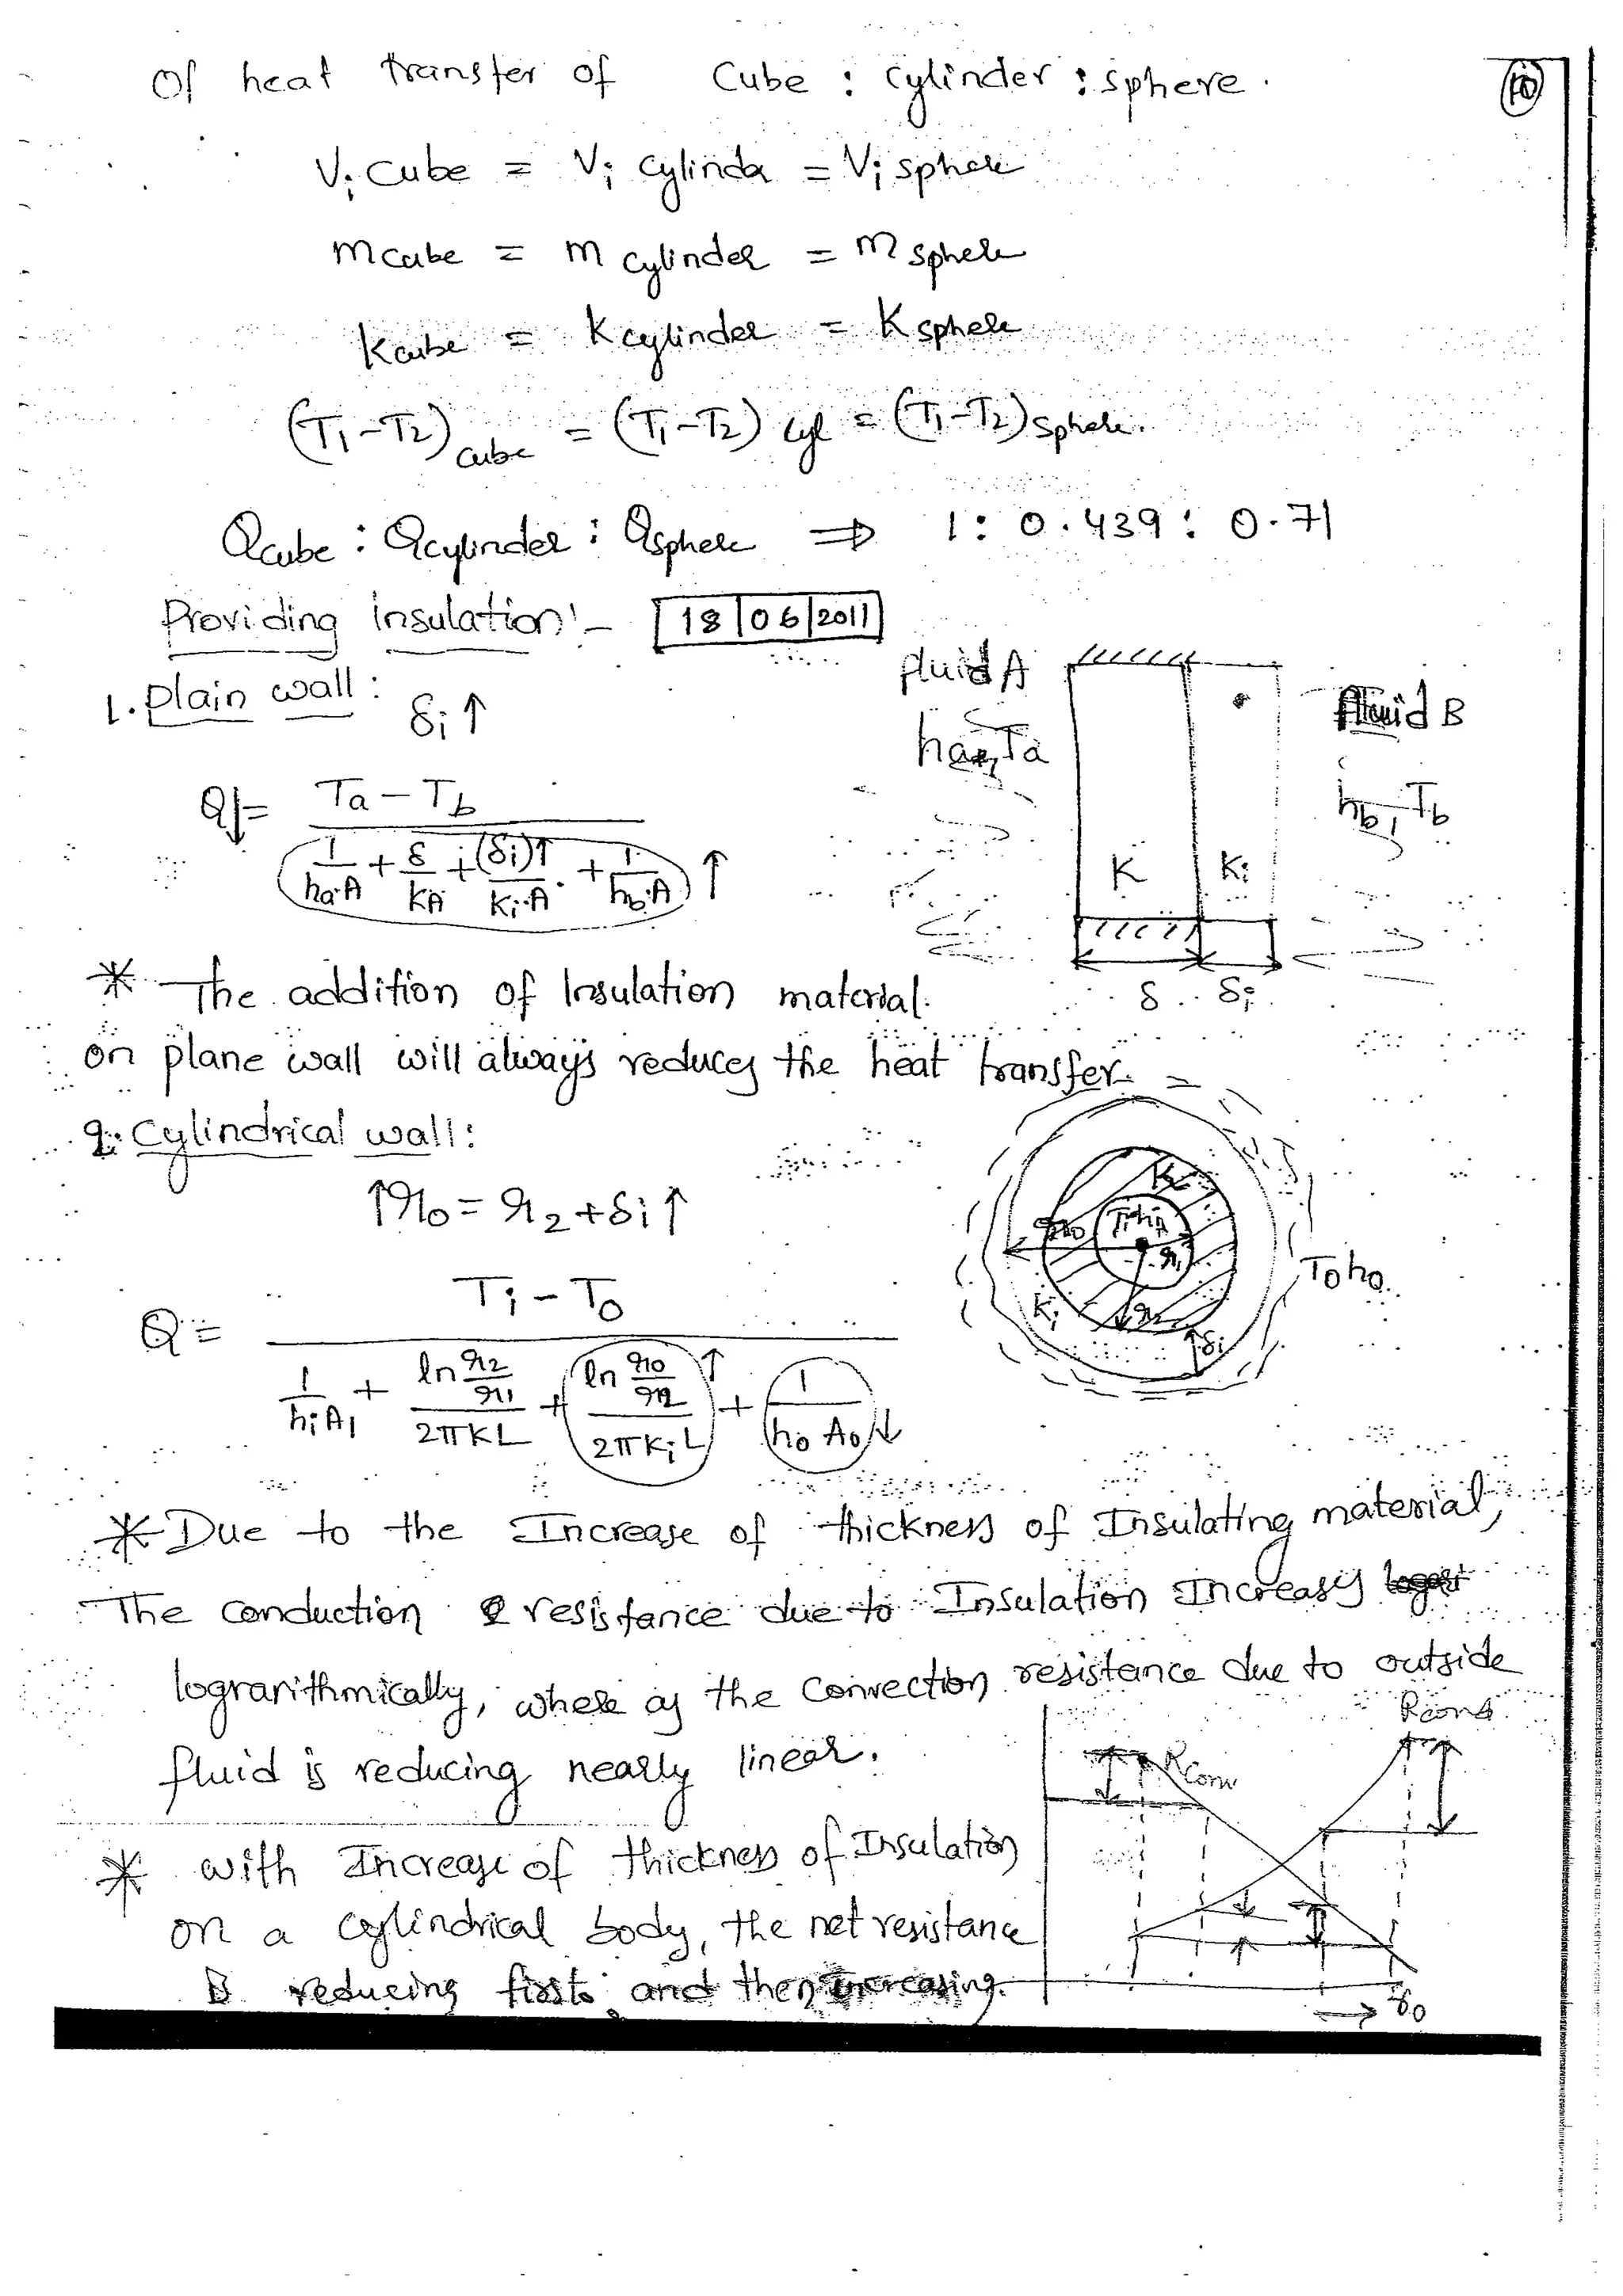 Of heat transfer of Cube : Cylinder : sphere.
10
Vi cube = Vi cylinder = Vi sphere
m cube = m cylinder = m sphere
K cube = K cylinder = K sphere
(T1-T2) cube = (T1-T2) cyl = (T1-T2) Sphere.
Qcube : Qcylinder : Qsphere ⇒ 1 : 0.439 : 0.71
Providing insulation:- 18/06/2011
1. Plain wall :
δi ↑
fluid A
fluid B
ha, Ta
hb, Tb
Q↓ = Ta - Tb
1/ha·A + δ/KA + (δi)↑/Ki·A + 1/hb·A ↑
K Ki
δ δi
* The addition of Insulation material
on plane wall will always reduces the heat transfer.
2. Cylindrical wall :
↑r0 = r2 + δi ↑
K
r0 Ti hi
r1
Ki r2
δi
T0 h0
Q = Ti - T0
1/hiA1 + ln r2/r1 / 2πKL + ln r0/r2 / 2πKiL ↑ + 1/h0 A0 ↓
* Due to the Increase of thickness of Insulating material,
The conduction resistance due to Insulation Increases
lograrithmically, where as the convection resistance due to outside
fluid is reducing nearly linear.
Rcond
Rconv
* with Increase of thickness of Insulation
on a cylindrical body, the net resistance
is reducing first and then increasing.
→ r0